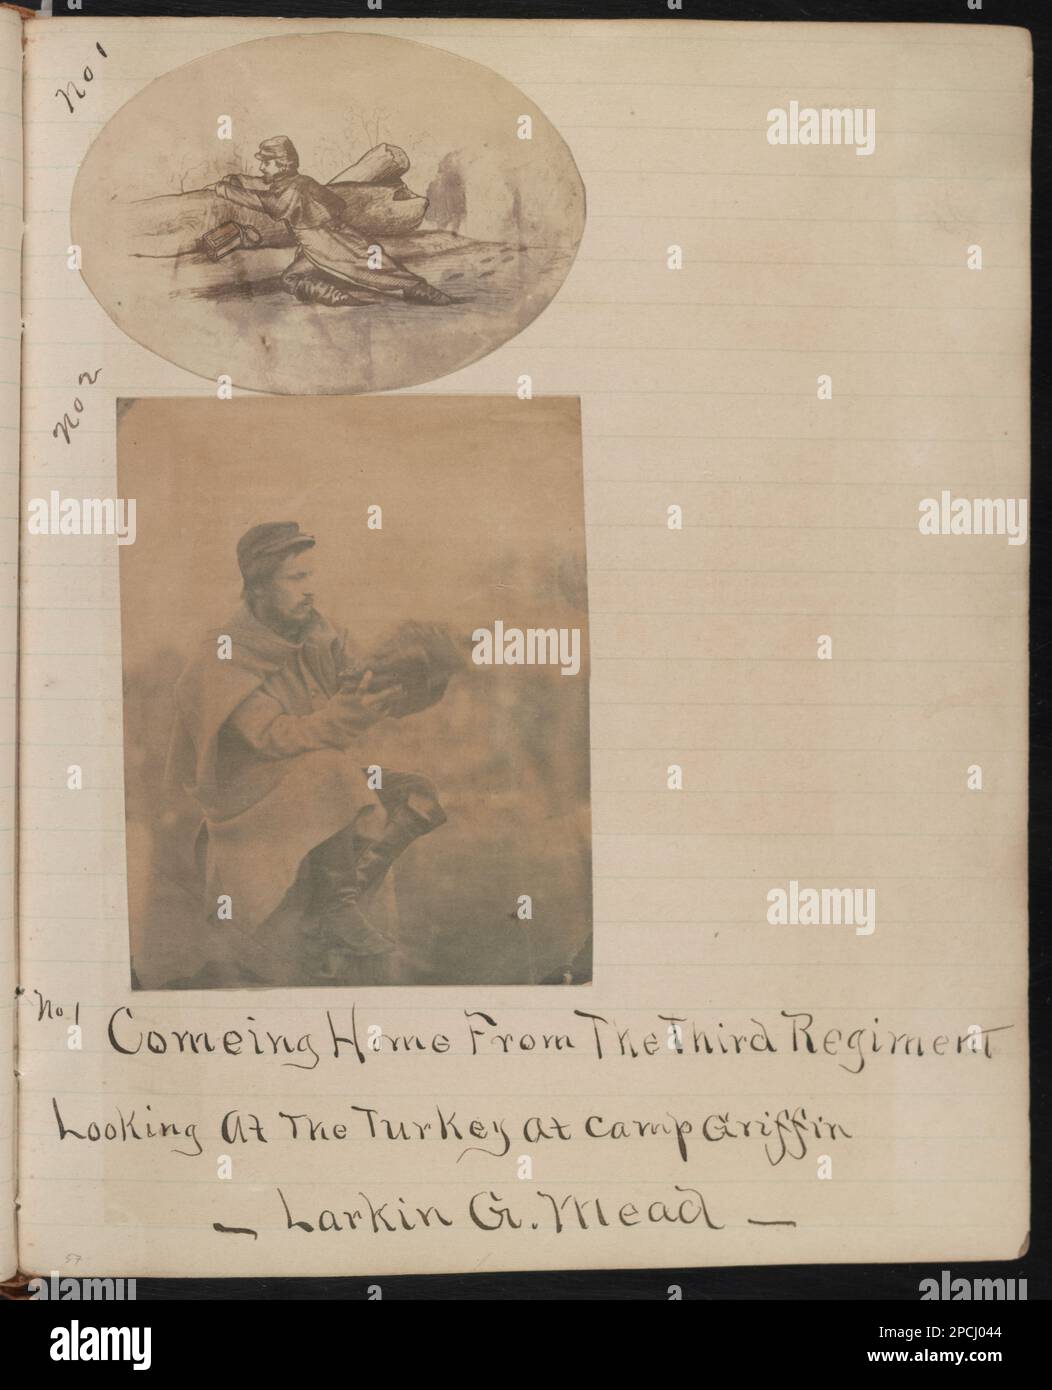 No 1
No 2
No 1 Comeing Home From The Third Regiment
Looking At The Turkey at Camp Griffin
— Larkin G. Mead —
57
alamy
Image ID: 2PCJ044
www.alamy.com